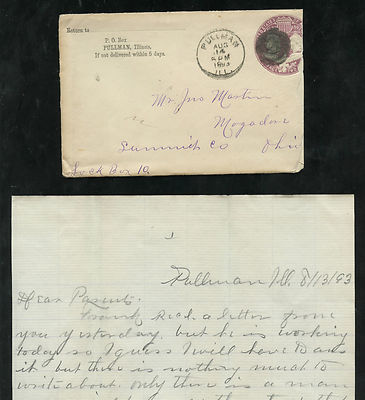 Return to
P. O. Box
PULLMAN, Illinois.
If not delivered within 5 days.
PULLMAN
AUG
14
5 PM
1893
ILL.
Mr. Jno Martin
Mogadore
Summit Co Ohio
Lock Box 10.
1
Pullman Ill. 8/13/93
Dear Parents.
Frank Recd. a letter from
you yesterday. but he is working
today so I guess I will have to ans
it. but there is nothing much to
write about. only there is a man